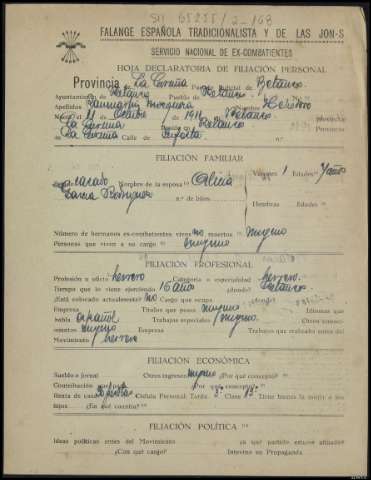 SM 65255/2-168
FALANGE ESPAÑOLA TRADICIONALISTA Y DE LAS JON-S
SERVICIO NACIONAL DE EX-COMBATIENTES
HOJA DECLARATORIA DE FILIACIÓN PERSONAL
Provincia de La Coruña Partido Judicial de Betanzos
Ayuntamiento de Betanzos Pueblo de Betanzos
Apellidos Nombre
Nació el 11 Octubre de 1911 Betanzos Provincia
La Coruña Betanzos Provincia
La Coruña Calle de
FILIACIÓN FAMILIAR
casado Nombre de la esposa Varones 1 Edades 7 años
Rodríguez n.º de hijos Hembras Edades
Número de hermanos ex-combatientes vivos no muertos ninguno
Personas que viven a su cargo ninguno
FILIACIÓN PROFESIONAL
Profesión u oficio herrero Categoría o especialidad herrero
Tiempo que lo viene ejerciendo 16 años ¿dónde? Betanzos
¿Está colocado actualmente? no Cargo que ocupa
Empresa Títulos que posee ninguno Idiomas que
habla español Trabajos especiales ninguno Otros conoci-
mientos ninguno Trabajos que realizaba antes del
Movimiento herrero
FILIACIÓN ECONÓMICA
Sueldo o jornal Otros ingresos ninguno ¿Por qué concepto?
Contribución ¿por qué concepto?
Renta de casa Cédula Personal Tarifa 3ª Clase 13ª Tiene bienes la mujer o sus
hijos ¿En qué cuantía?
FILIACIÓN POLÍTICA
Ideas políticas antes del Movimiento en qué partido estuvo afiliado
¿Con qué cargo? Intervino en Propaganda